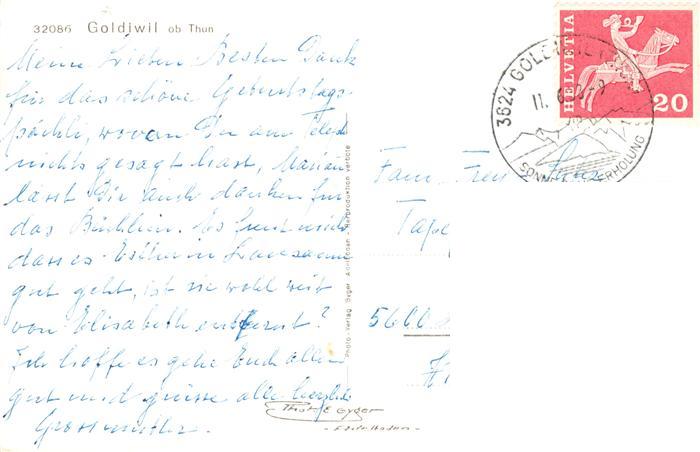 32086 Goldiwil ob Thun
Meine Lieben Besten Dank
für das schöne Geburtstags-
päckli, wovon Du am Telef.
nichts gesagt hast, Marian
lässt Dir auch danken für
das Büchlein. Es freut mich
dass es Esther in Lausanne
gut geht, ist sie wohl weit
von Elisabeth entfernt?
Ich hoffe es gehe Euch allen
gut und grüsse alle herzlich
Grossmutter.
HELVETIA
20
3624 GOLDIWIL
11. 6.
SONN ERHOLUNG
Fam. Frey
5600
Photo-Verlag Gyger Adelboden - Reproduktion verbote
Photo E Gyger
- Adelboden -